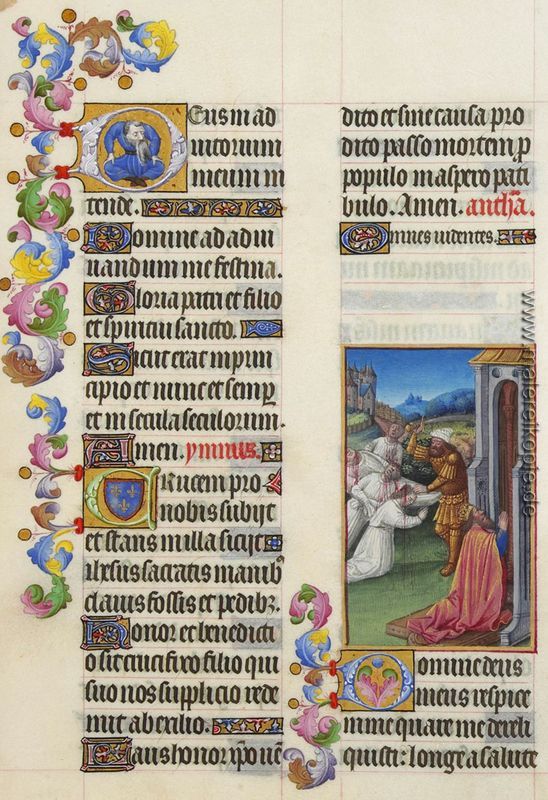 Deus in ad
iutorium
meum in
tende.
Domine ad adiu
uandum me festina.
Gloria patri et filio
et spiritui sancto.
Sicut erat in prin
cipio et nunc et semp
et in secula seculorum.
Amen. ymnus.
Crucem pro
nobis subijt
et stans in illa sicijt
ihesus sacratis manib
clauis fossis et pedibz.
Honor et benedicti
o sit crucifixo filio qui
suo nos supplicio rede
mit ab exilio.
Laus honor xpo uē
dito et sine causa pro
dito passo mortem p
populo in aspero pati
bulo. Amen. antha.
Omnes uidentes.
Domine deus
meus respice
in me quare me dereli
quisti: longe a salute
www.malereikopie.de